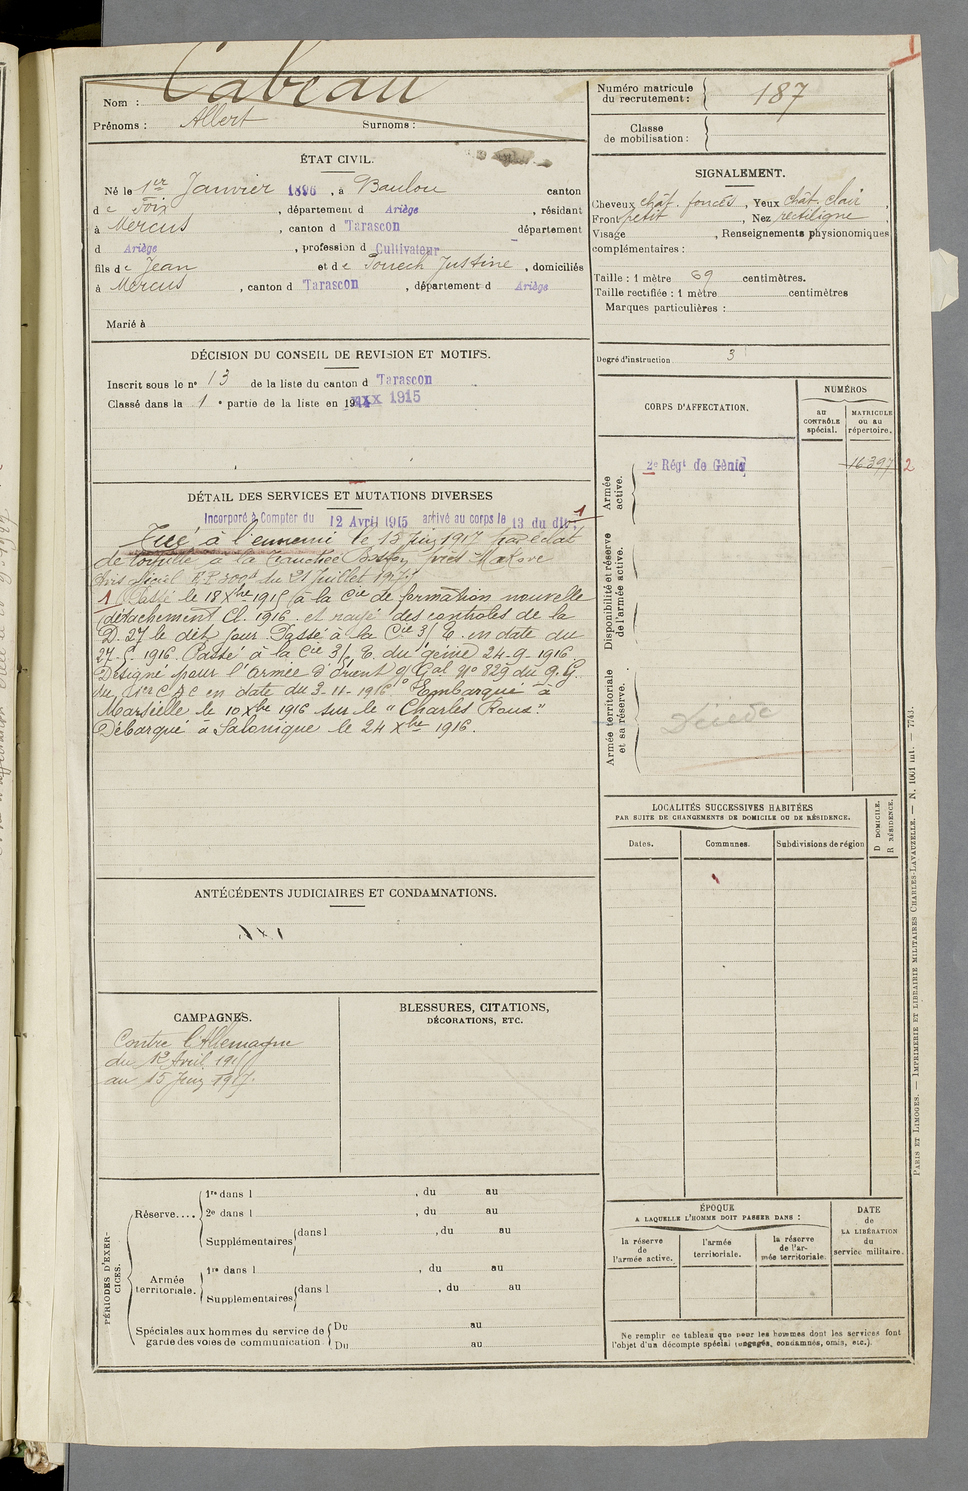 1
Nom : Cabeau
Prénoms : Albert Surnoms :
Numéro matricule
du recrutement : 187
Classe
de mobilisation :
ÉTAT CIVIL.
Né le 1er Janvier 1896, à Baulou canton
de Foix, département d Ariège, résidant
à Mercus, canton d Tarascon département
d Ariège, profession d Cultivateur
fils de Jean et de Justine, domiciliés
à Mercus, canton d Tarascon, département d Ariège
Marié à
SIGNALEMENT.
Cheveux chât. foncés, Yeux chât. clair,
Front petit, Nez rectiligne,
Visage , Renseignements physionomiques
complémentaires :
Taille : 1 mètre 69 centimètres.
Taille rectifiée : 1 mètre centimètres
Marques particulières :
Degré d'instruction 3
DÉCISION DU CONSEIL DE REVISION ET MOTIFS.
Inscrit sous le n° 13 de la liste du canton d Tarascon
Classé dans la 1e partie de la liste en 1915
DÉTAIL DES SERVICES ET MUTATIONS DIVERSES
Incorporé à Compter du 12 Avril 1915 arrivé au corps le 13 du dit 1
Tué à l'ennemi le 15 Juin 1917 par éclat
de torpille à la tranchée près Makovo
Avis officiel du 21 Juillet 1917
1 Classé le 18 Xbre 1915 à la Cie de formation nouvelle
(détachement Cl. 1916. et rayé des controles de la
D. 27 le dit jour. Passé à la Cie 3/ E. en date du
1916. Passé à la Cie 3/ E. du génie 24-9-1916
Désigné pour l'armée d'Orient Gal n° 829 du G.G.
en date du 3-11-1916. Embarqué à
Marseille le 10 Xbre 1916 sur le "Charles Roux".
Débarqué à Salonique le 24 Xbre 1916.
CORPS D'AFFECTATION.
NUMÉROS
au
CONTRÔLE
spécial.
MATRICULE
ou au
répertoire.
Armée
active.
2e Régt de Génie 16397 2
Disponibilité et réserve
de l'armée active.
Armée territoriale
et sa réserve.
Décédé
LOCALITÉS SUCCESSIVES HABITÉES
PAR SUITE DE CHANGEMENTS DE DOMICILE OU DE RÉSIDENCE.
Dates. Communes. Subdivisions de région
D DOMICILE.
R RÉSIDENCE.
ANTÉCÉDENTS JUDICIAIRES ET CONDAMNATIONS.
CAMPAGNES.
Contre l'Allemagne
du 12 Avril 1915
au 15 Juin 1917.
BLESSURES, CITATIONS,
DÉCORATIONS, ETC.
PÉRIODES D'EXER-
CICES.
Réserve....
1re dans l , du au
2e dans l , du au
Supplémentaires dans l , du au
Armée
territoriale.
1re dans l , du au
Supplémentaires dans l , du au
Spéciales aux hommes du service de
garde des voies de communication
Du au
Du au
ÉPOQUE
A LAQUELLE L'HOMME DOIT PASSER DANS :
la réserve
de
l'armée active.
l'armée
territoriale.
la réserve
de l'ar-
mée territoriale.
DATE
de
LA LIBÉRATION
du
service militaire.
Ne remplir ce tableau que pour les hommes dont les services font
l'objet d'un décompte spécial (engagés, condamnés, omis, etc.).
PARIS ET LIMOGES. — IMPRIMERIE ET LIBRAIRIE MILITAIRES CHARLES-LAVAUZELLE. — N. 1001 int. — 7743.